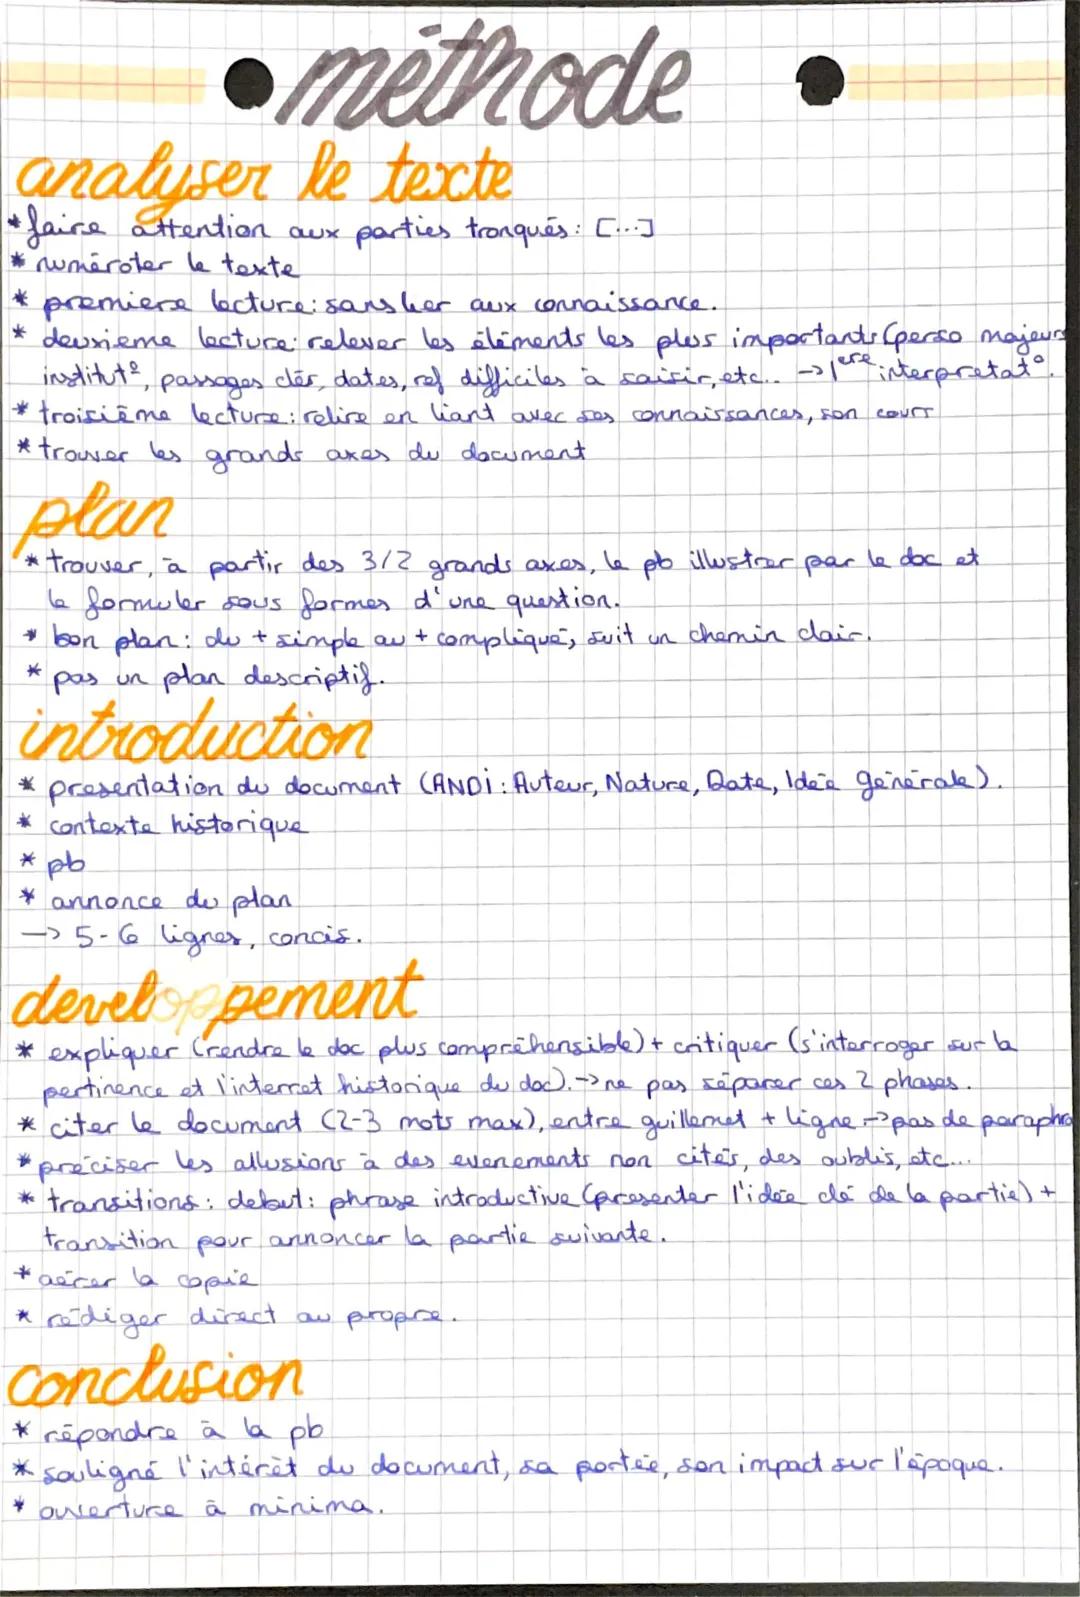 méthode
analyser le texte
* faire attention aux parties tronqués : [...]
* numéroter le texte
* premiere lecture : sans lier aux connaissance.
* deuxieme lecture : relever les éléments les plus importants (perso majeurs
institut°, passages clés, dates, ref difficiles à saisir, etc... -> 1ere interpretat°.
* troisième lecture : relire en liant avec ses connaissances, son cours
* trouver les grands axes du document
plan
* trouver, à partir des 3/2 grands axes, la pb illustrer par le doc et
la formuler sous formes d'une question.
* bon plan : du + simple au + compliqué, suit un chemin clair.
* pas un plan descriptif.
introduction
* presentation du document (ANDi : Auteur, Nature, Date, Idée générale).
* contexte historique
* pb
* annonce du plan
-> 5-6 lignes, concis.
developpement
* expliquer (rendre le doc plus compréhensible) + critiquer (s'interroger sur la
pertinence et l'interret historique du doc). -> ne pas séparer ces 2 phases.
* citer le document (2-3 mots max), entre guillemet + ligne -> pas de paraphra
* préciser les allusions à des evenements non cités, des oublis, etc...
* transitions : debut : phrase introductive (presenter l'idée clé de la partie) +
transition pour annoncer la partie suivante.
* aérer la copie
* rédiger direct au propre.
conclusion
* répondre à la pb
* souligné l'intérêt du document, sa portée, son impact sur l'époque.
* ouverture à minima.